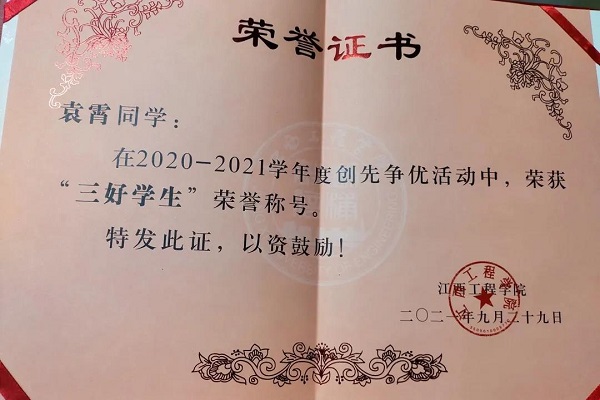 荣誉证书
袁霄同学：
在2020-2021学年度创先争优活动中，荣获
“三好学生”荣誉称号。
特发此证，以资鼓励！
江西工程学院
二〇二一年九月二十九日